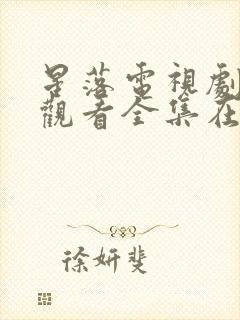 星落電視劇
觀看全集在
徐妍斐